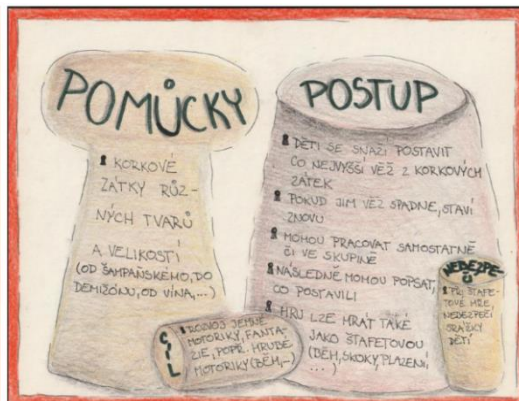 POMŮCKY
KORKOVÉ
ZÁTKY RŮZ-
NÝCH TVARŮ
A VELIKOSTÍ
(OD ŠAMPAŇSKÉHO, DO
DEMIŽÓNU, OD VÍNA,...)
POSTUP
DĚTI SE SNAŽÍ POSTAVIT
CO NEJVYŠŠÍ VĚŽ Z KORKOVÝCH
ZÁTEK
POKUD JIM VĚŽ SPADNE, STAVÍ
ZNOVU
MOHOU PRACOVAT SAMOSTATNĚ
ČI VE SKUPINĚ
NÁSLEDNĚ MOHOU POPSAT,
CO POSTAVILI
HRU LZE HRÁT TAKÉ
JAKO ŠTAFETOVOU
(BĚH, SKOKY, PLAZENÍ
...)
CÍL
ROZVOJ JEMNÉ
MOTORIKY, FANTA-
ZIE, POPŘ. HRUBÉ
MOTORIKY (BĚH,...)
NEBEZPE-
ČÍ
PŘI ŠTAFE-
TOVÉ HŘE,
NEBEZPEČÍ
SRÁŽKY
DĚTÍ